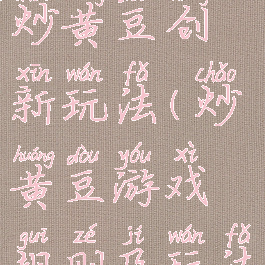 炒黄豆创
xīn wán fǎ chǎo
新玩法(炒
huáng dòu yóu xì
黄豆游戏
guī zé jí wán fǎ
规则及玩法